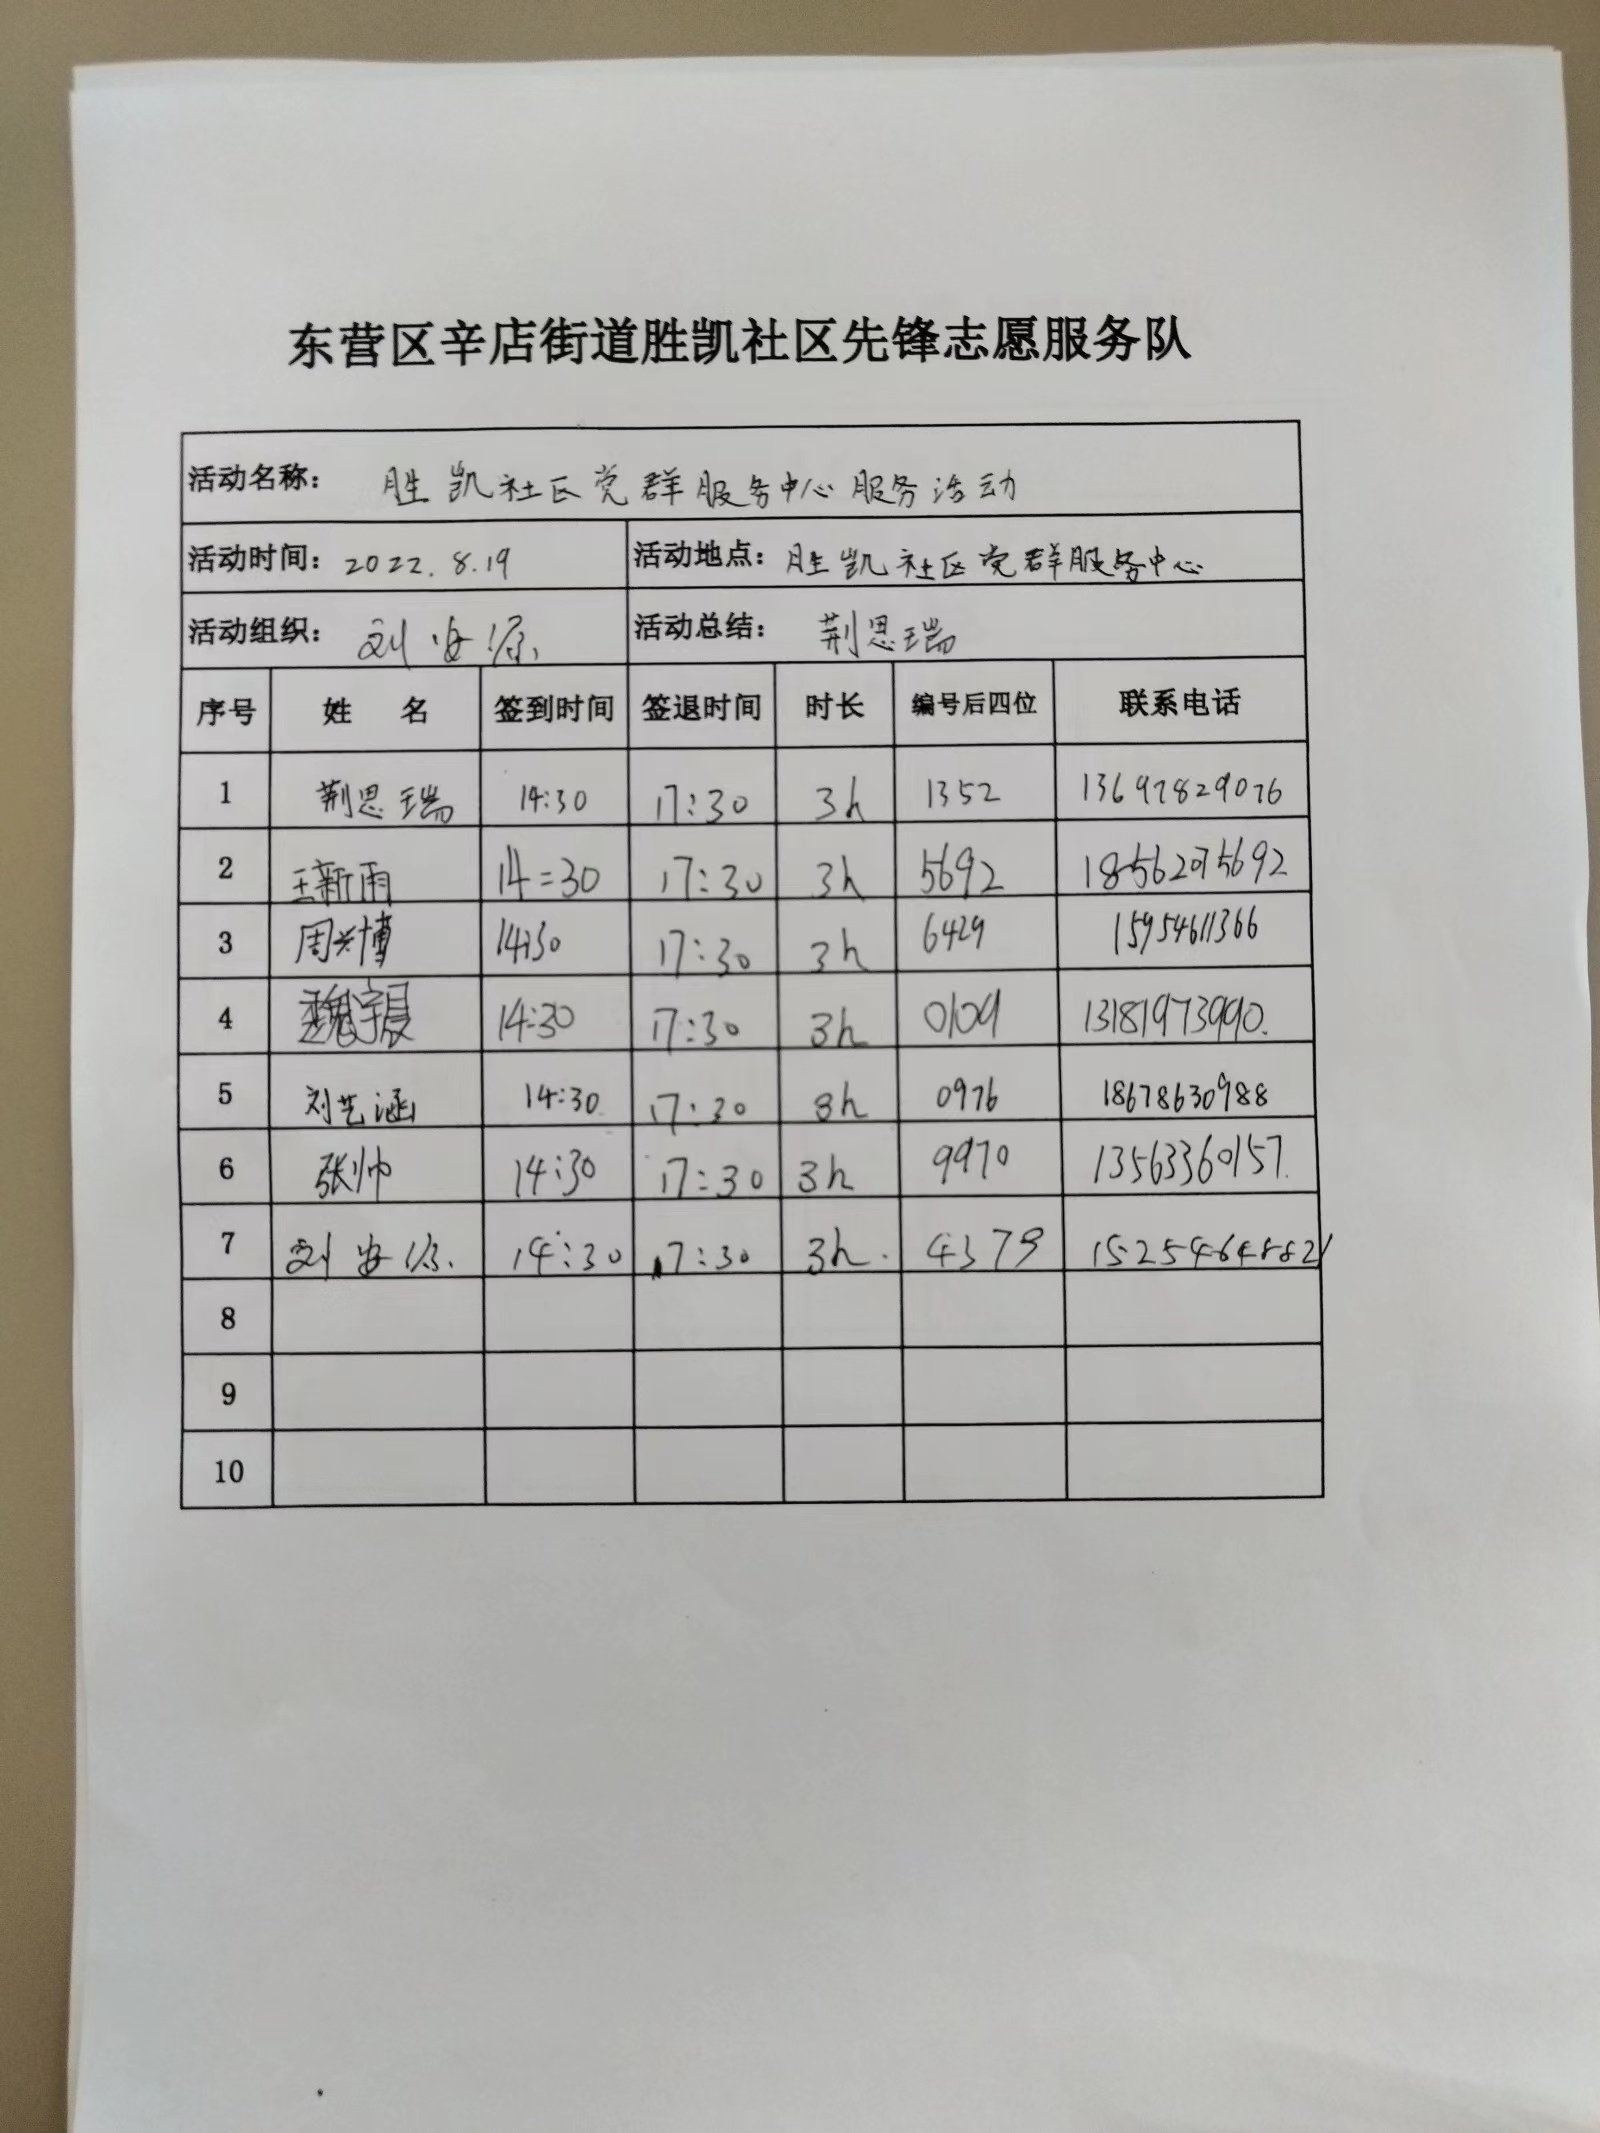 东营区辛店街道胜凯社区先锋志愿服务队
活动名称： 胜凯社区党群服务中心服务活动
活动时间：2022.8.19 活动地点：胜凯社区党群服务中心
活动组织：刘安源 活动总结：荆思瑞
序号 姓 名 签到时间 签退时间 时长 编号后四位 联系电话
1 荆思瑞 14:30 17:30 3h 1352 13697829076
2 王新雨 14:30 17:30 3h 5692 18562075692
3 周兴博 14:30 17:30 3h 6429 15954611366
4 魏宇晨 14:30 17:30 3h 0109 13181973990.
5 刘艺涵 14:30 17:30 3h 0976 18678630988
6 张帅 14:30 17:30 3h 9970 13563360157.
7 刘安源. 14:30 17:30 3h. 4379 15254648821
8
9
10